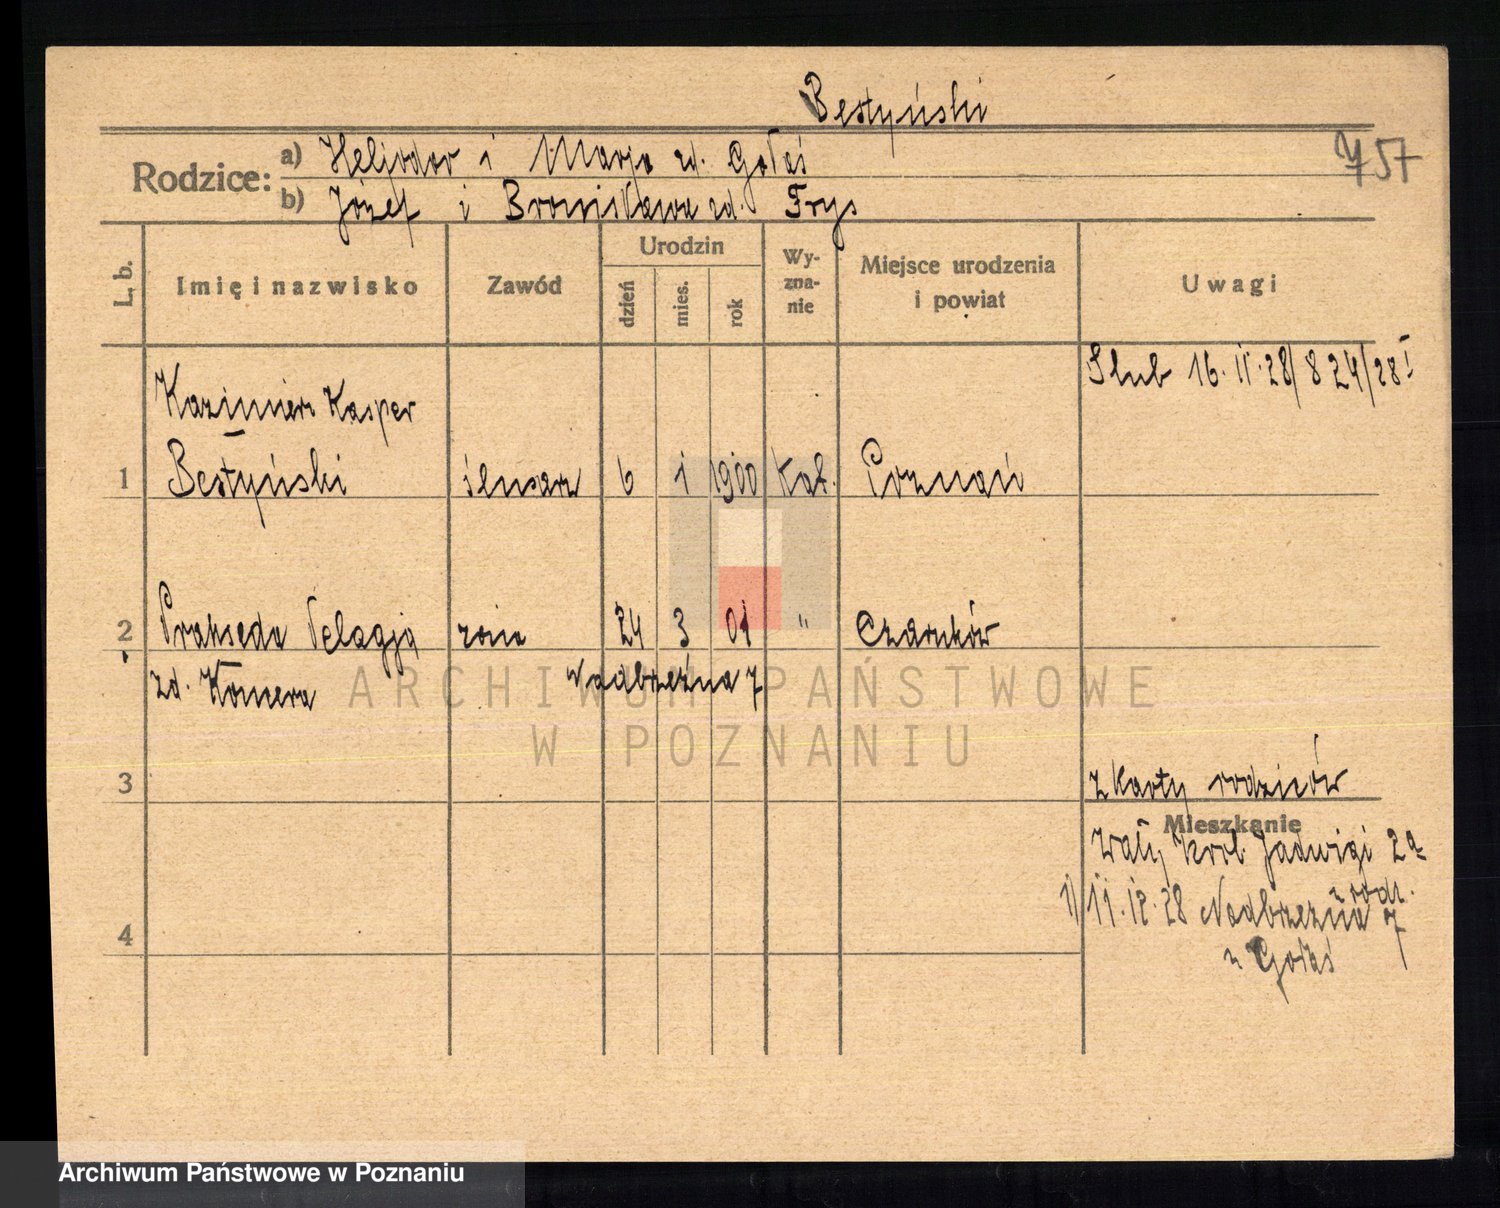 Bestyński
757
Rodzice: a) Heljodor i Marja zd. Gołaś
b) Józef i Bronisława zd. Frys
L. b. Imię i nazwisko Zawód Urodzin dzień mies. rok Wyznanie Miejsce urodzenia i powiat Uwagi
Slub 16.11.28/824/28 I
Kazimierz Kasper
1 Bestyński ślusarz 6 1 1900 Kat. Poznań
2 Prakseda Pelagja żona 24 3 01 " Czarnków
zd. Komera Nadbrzeżna 7
ARCHIWUM PAŃSTWOWE
W POZNANIU
3 z karty rodziców
Mieszkanie
Wały Król. Jadwigi 2a
u rodz.
1) 11.12.28 Nadbrzeżna 7
u Gołaś
4
Archiwum Państwowe w Poznaniu